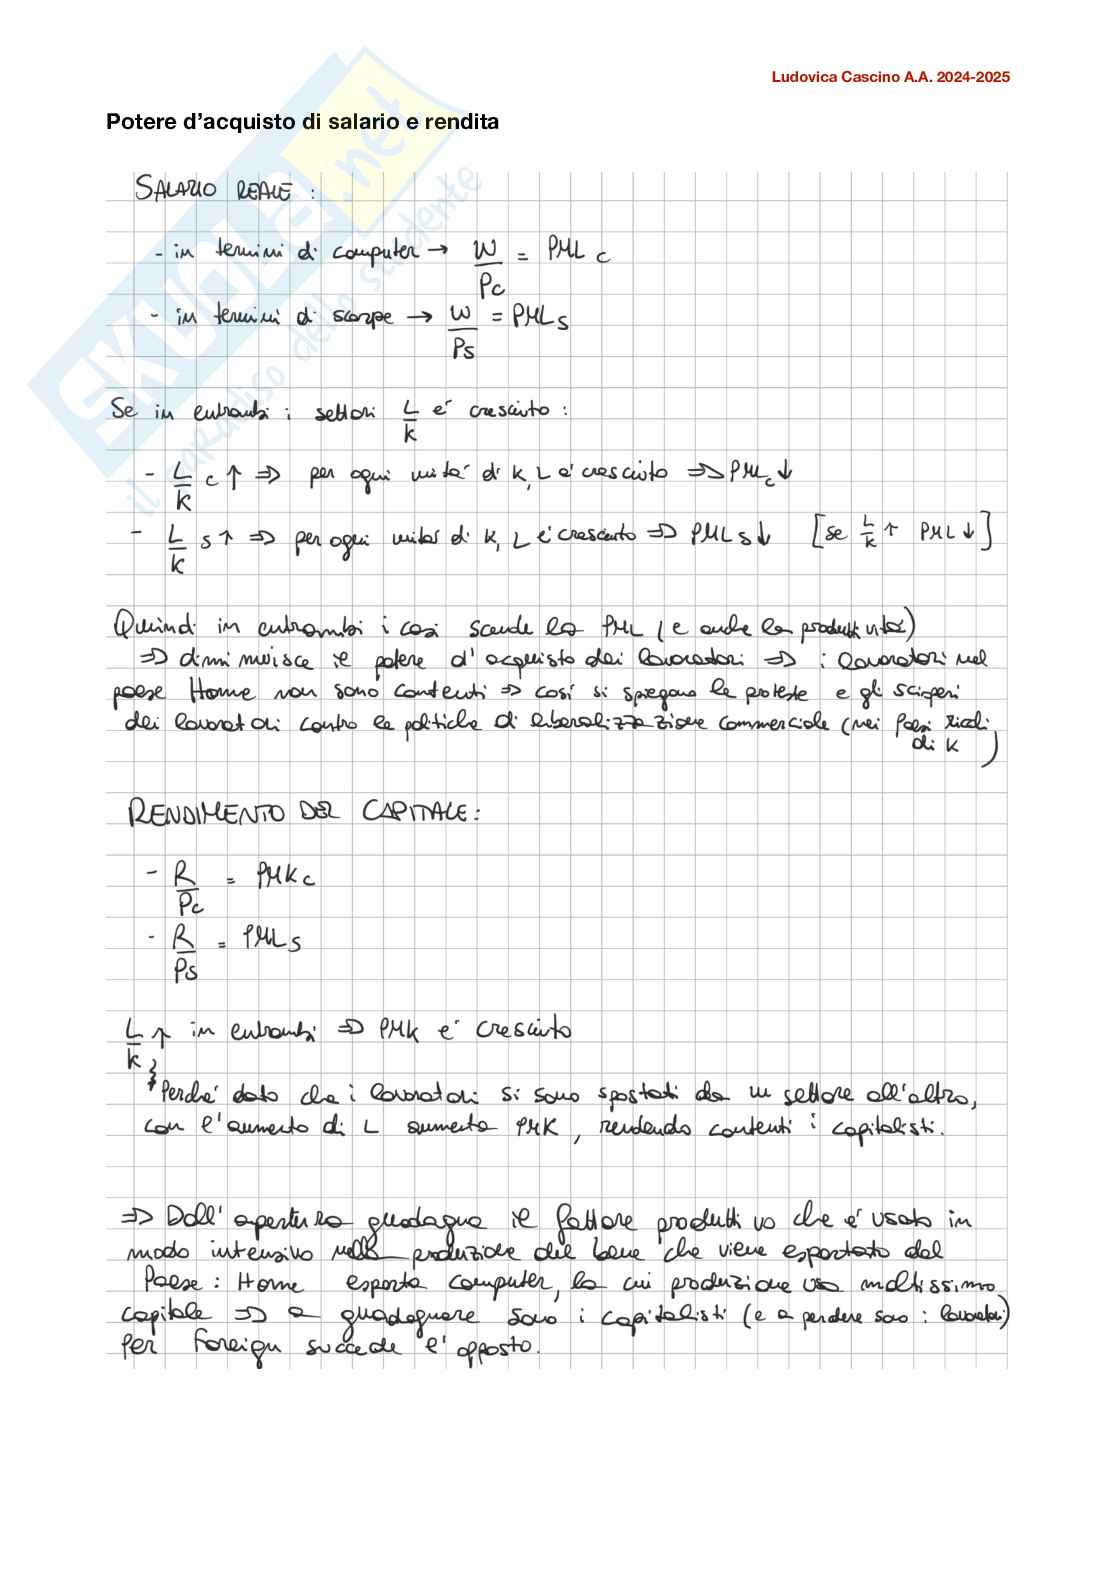 Ludovica Cascino A.A. 2024-2025
Potere d'acquisto di salario e rendita
SKUOLA.net
il paradiso dello studente
SALARIO REALE :
- in termini di computer → W/Pc = PML c
- in termini di scarpe → W/Ps = PML s
Se in entrambi i settori L/K e' cresciuto :
- L/K c ↑ ⇒ per ogni unita' di K, L e' cresciuto ⇒ PML c ↓
- L/K s ↑ ⇒ per ogni unita' di K, L e' cresciuto ⇒ PML s ↓ [se L/K ↑ PML ↓]
Quindi in entrambi i casi scende la PML (e anche la produttivita')
⇒ diminuisce il potere d'acquisto dei lavoratori ⇒ i lavoratori nel
paese Home non sono contenti ⇒ così si spiegano le proteste e gli scioperi
dei lavoratori contro le politiche di liberalizzazione commerciale (nei Paesi ricchi
di K)
RENDIMENTO DEL CAPITALE :
- R/Pc = PMK c
- R/Ps = PML s
L/K ↑ in entrambi ⇒ PMK e' cresciuto
Perche' dato che i lavoratori si sono spostati da un settore all'altro,
con l'aumento di L aumenta PMK, rendendo contenti i capitalisti.
⇒ Dall'apertura guadagna il fattore produttivo che e' usato in
modo intensivo nella produzione del bene che viene esportato dal
Paese : Home esporta computer, la cui produzione usa moltissimo
capitale ⇒ a guadagnare sono i capitalisti (e a perdere sono i lavoratori)
Per Foreign succede l'opposto.